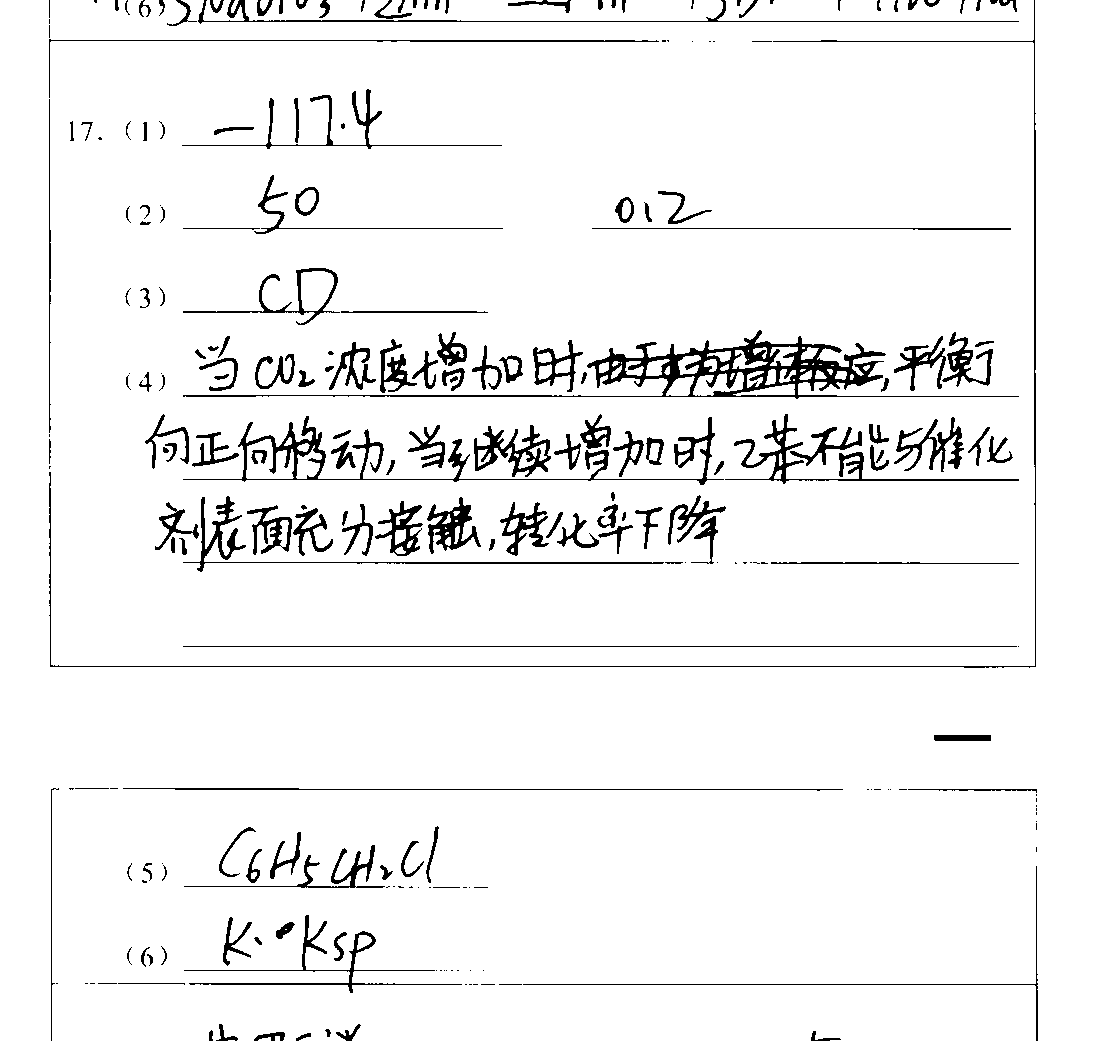 (6)
17. (1) -117.4
(2) 50 0.2
(3) CD
(4) 当CO₂浓度增加时, 平衡
向正向移动, 当继续增加时, 乙苯不能与催化
剂表面充分接触, 转化率下降
(5) C₆H₅CH₂Cl
(6) K·Ksp